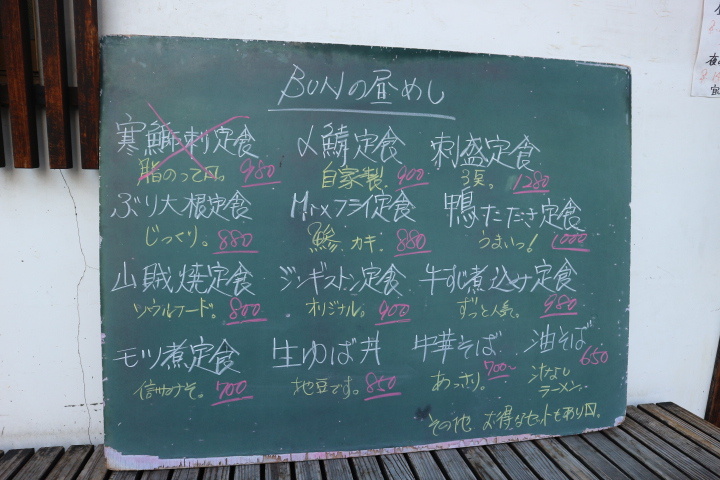 BUNの昼めし
寒鰤刺定食 〆鯖定食 刺盛定食
脂のって〼。 980 自家製 900 3点。 1280
ぶり大根定食 Mixフライ定食 鴨たたき定食
じっくり。 880 鯵、カキ。 880 うまいっ! 1000
山賊焼定食 ジンギスカン定食 牛すじ煮込み定食
ソウルフード。 800 オリジナル。 900 ずっと人気。 980
モツ煮定食 生ゆば丼 中華そば 油そば
信州みそ。 700 地豆です。 850 あっさり。 700〜 汁なし 650
ラーメン。
その他 お得なセットもあり〼。